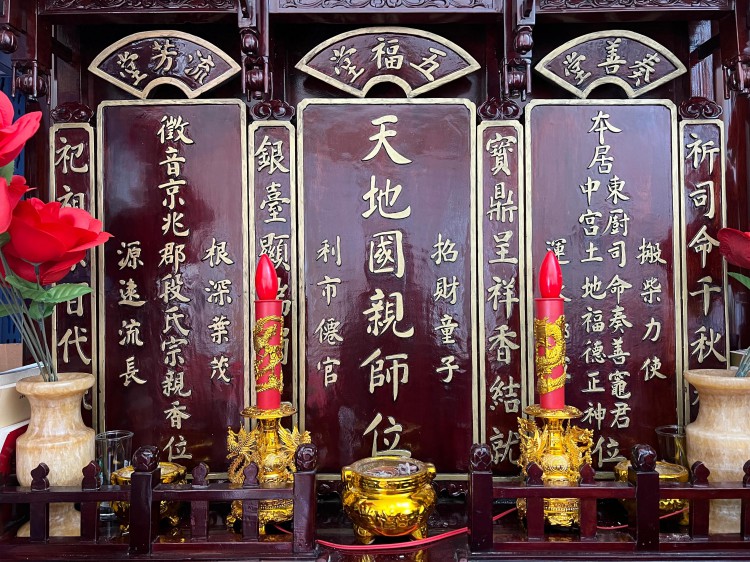 奏善堂
五福堂
流芳堂
祈司命千秋
搬柴力使
本居
東厨司命奏善竈君
中宮土地福德正神
位
運
寶鼎呈祥香結就
招財童子
天地國親師位
利市僊官
銀臺顯
根深葉茂
徵音京兆郡段氏宗親香位
源遠流長
祀祖
百代